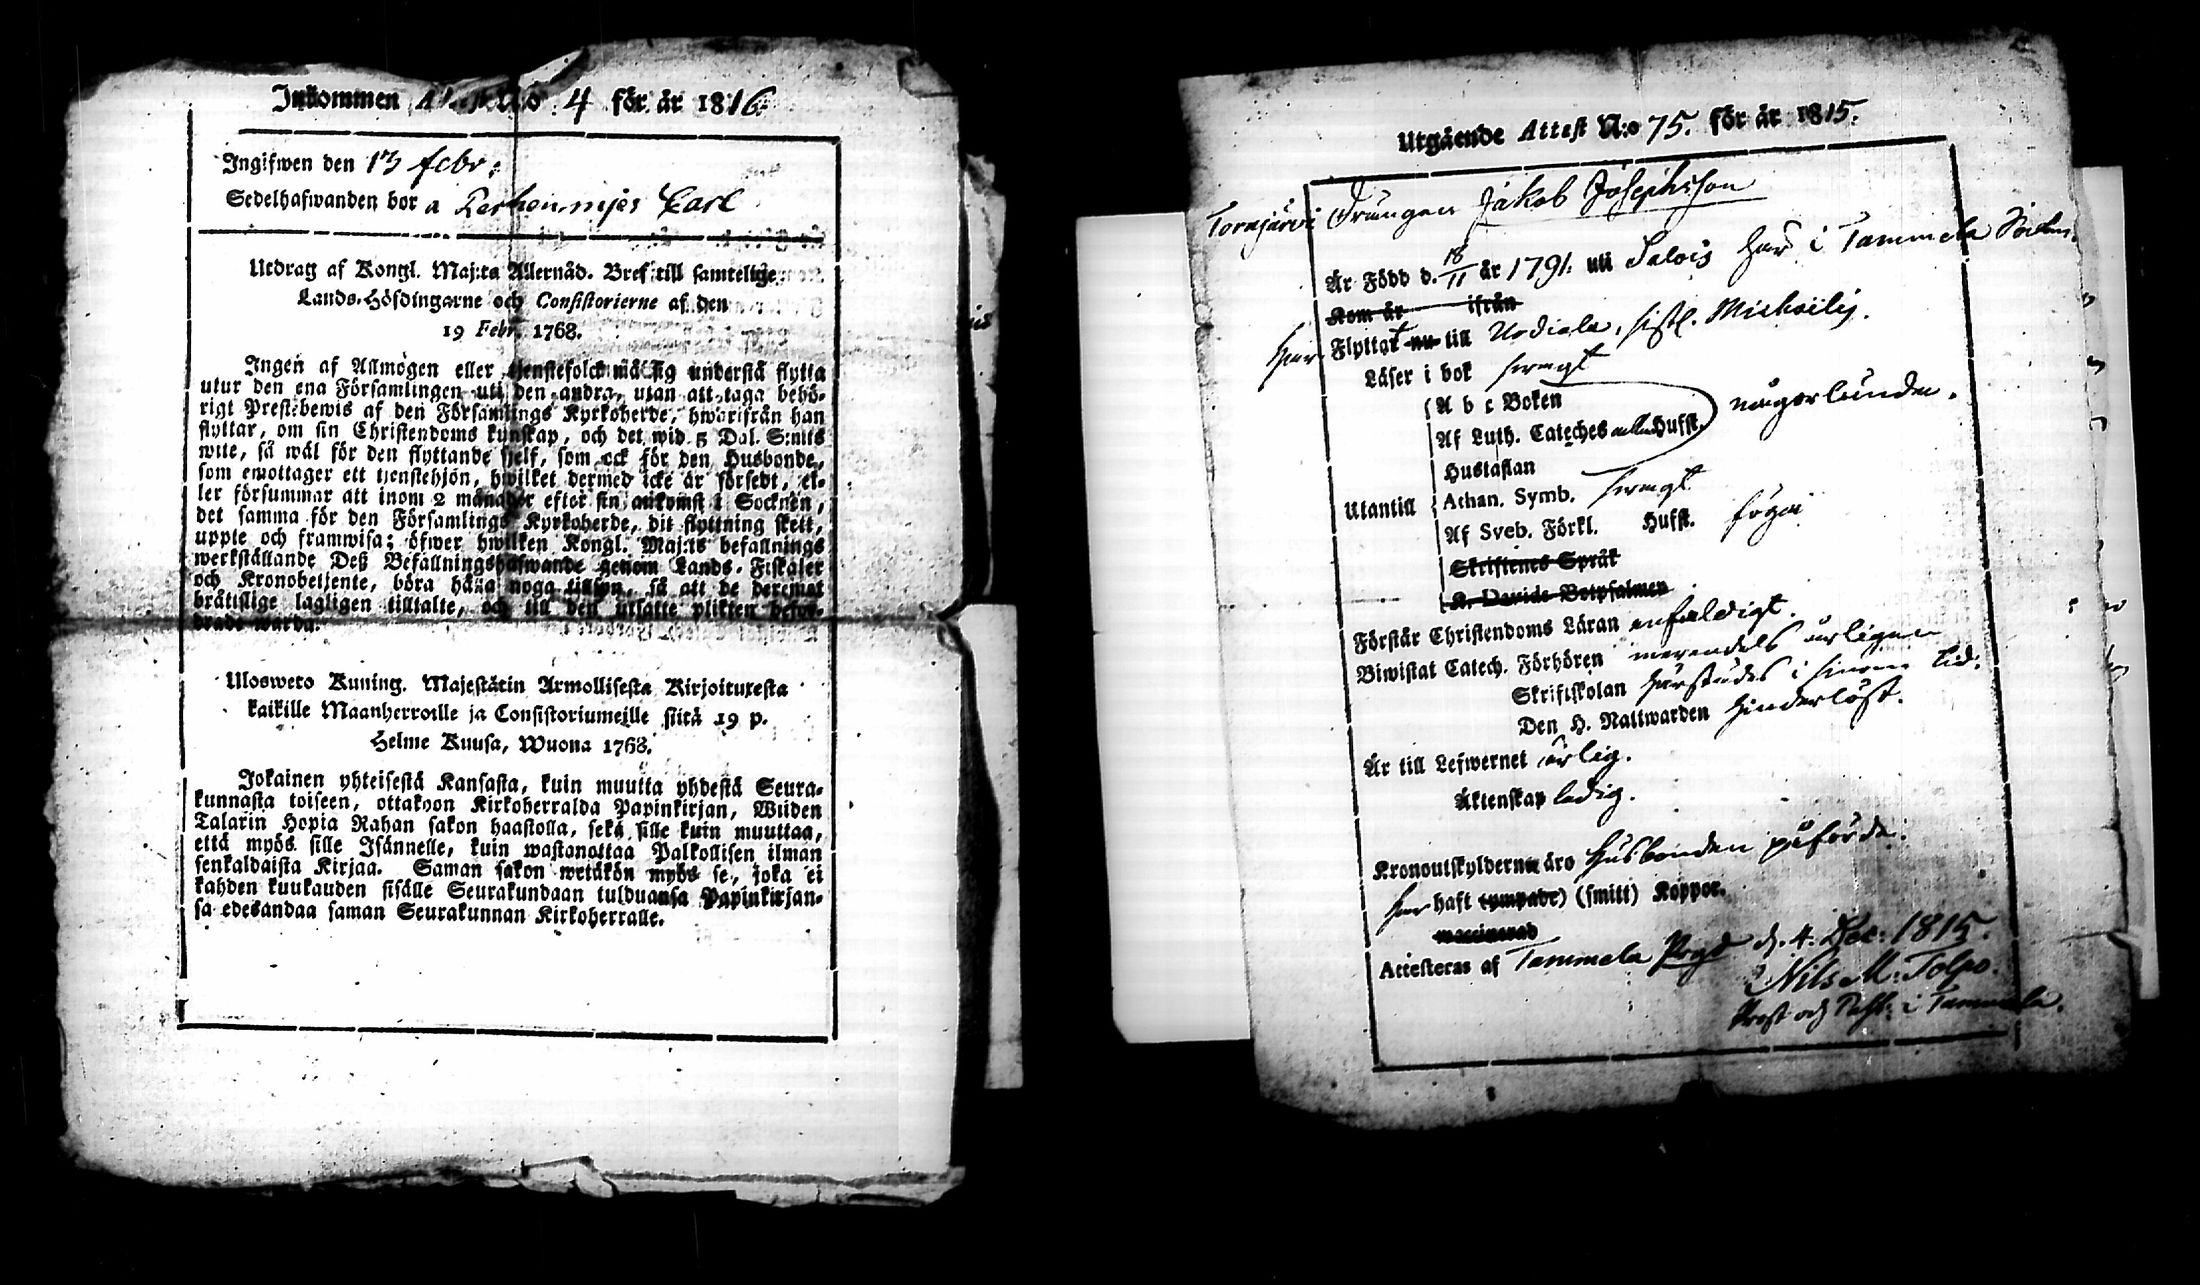 Inkommen Attest N:o 4 för år 1816.
Ingifwen den 13 febr:
Sedelhafwanden bor a Karl
Utdrag af Kongl. Maj:ts Allernåd. Bref till samtelige
Lands-Höfdingarne och Consistorierne af den
19 Febr. 1768.
Ingen af Allmogen eller tjenstefolck må sig understå flytta
utur den ena Församlingen uti den andra, utan att taga behö-
rigt Prestebewis af den Församlings Kyrkoherde, hwarifrån han
flyttar, om sin Christendoms kunskap, och det wid 5 Dal. S:mts
wite, så wäl för den flyttande sjelf, som ock för den Husbonde,
som emottager ett tjenstehjon, hwilket dermed icke är försedt, el-
ler försummar att inom 2 månader efter sin ankomst i Socknen,
det samma för den Församlings Kyrkoherde, dit flyttning skett,
uppte och framwisa; öfwer hwilken Kongl. Maj:ts befallnings
werkställande Deß Befallningshafwande genom Lands-Fiskaler
och Kronobetjente, böra hafwa noga tillsyn, så att de deremot
bråttslige lagligen tilltalte, och till den utsatte plikten befor-
drade warda.
Uloswето Kuning. Majestätin Armollisesta Kirjoituxesta
kaikille Maanherroille ja Consistoriumeille siitä 19 p.
Helme Kuusa, Wuona 1768.
Jokainen yhteisestä Kansasta, kuin muutta yhdestä Seura-
kunnasta toiseen, ottakoon Kirkoherralda Papinkirjan, Wiiden
Talarin Hopia Rahan sakon haastolla, sekä sille kuin muuttaa,
että myös sille Isännelle, kuin wastanottaa Palkollisen ilman
senkaldaista Kirjaa. Saman sakon wetäkön myös se, joka ei
kahden kuukauden sisälle Seurakundaan tulduansa Papinkirjan-
sa edesandaa saman Seurakunnan Kirkoherralle.
Utgående Attest N:o 75. för år 1815.
Torajärvi Drängen Jakob Josephsson
Är Född d. 18/11 år 1791. uti Salois här i Tammela Socken.
Kom år ifrån
har Flyttat nu till Urdiala, sistl. Michaelis.
Läser i bok swagt
A b c Boken
Af Luth. Cateches Hufst. någorlunda.
Hustaflan
Utantill Athan. Symb. swagt
Af Sveb. Förkl. Hufst. föga
Skriftenes Språk
K. Davids Botpsalmer
Förstår Christendoms Läran enfaldigt.
Biwistat Catech. Förhören merendels årligen
Skriftskolan härstädes i sinom tid.
Den H. Nattwarden hinderlöst.
Är till Lefwernet ärlig.
Äktenskap ledig.
Kronoutskylderna äro Husbonden påförde.
har haft (smitt) Koppor.
vaccinerad
Attesteras af Tammela Prgd d. 4. Dec: 1815.
Nils M: Tolpo.
Prost och Past: i Tammela.